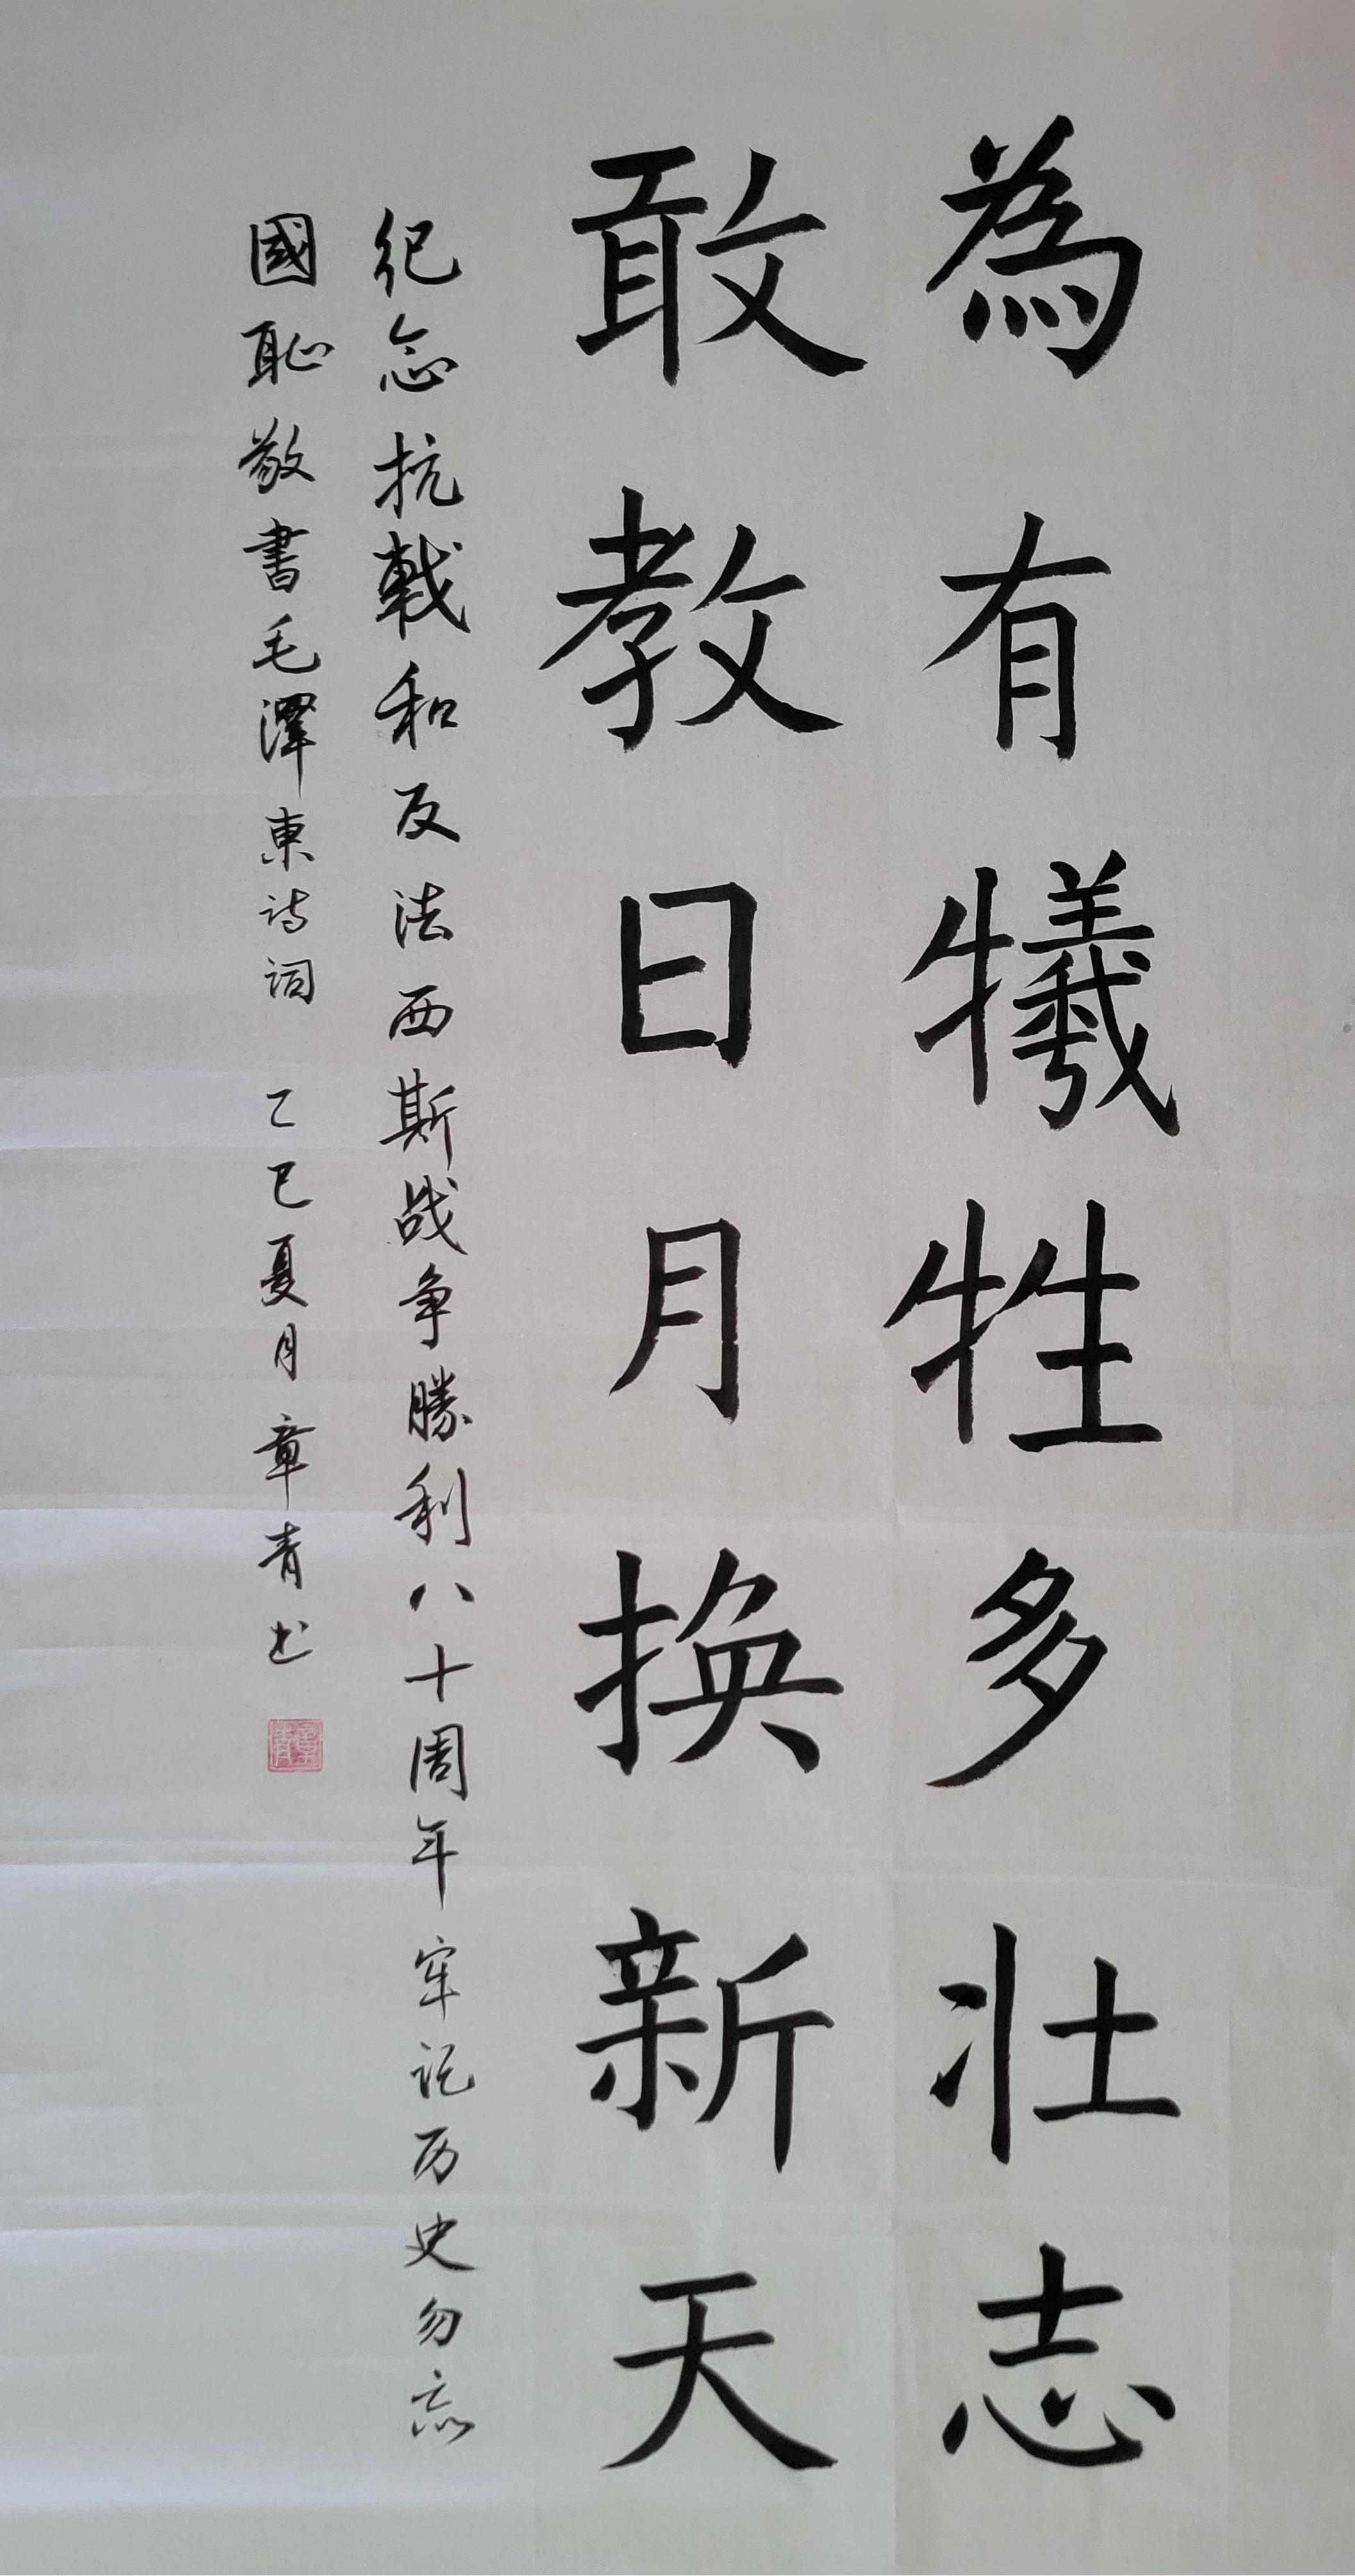 為有犧牲多壮志
敢教日月换新天
纪念抗戰和反法西斯战争勝利八十周年牢记历史勿忘
國恥敬書毛澤東诗词 乙巳夏月章青书
章青